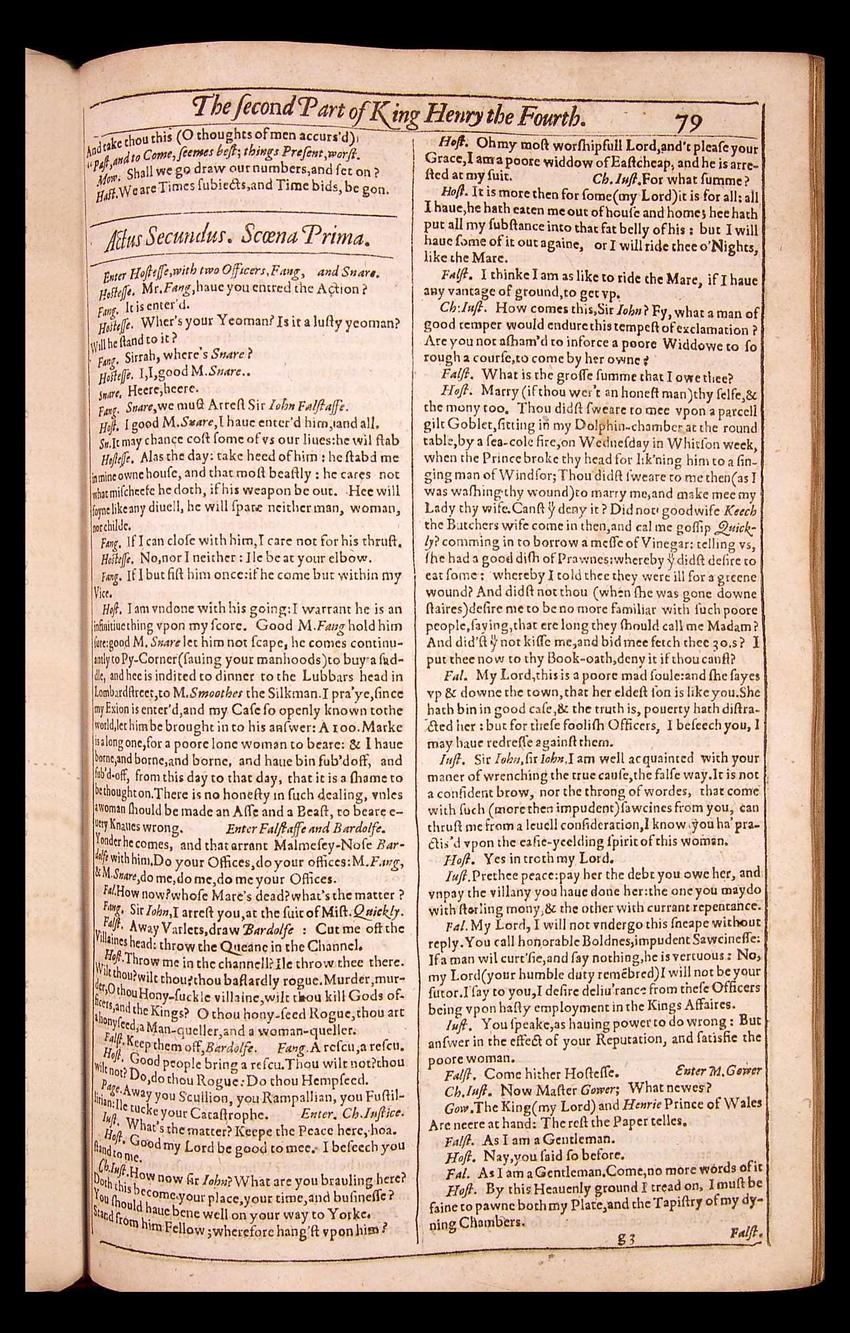 The second Part of King Henry the Fourth. 79
And take thou this (O thoughts of men accurs'd)
“Past, and to Come, seemes best; things Present, worst.
Mow. Shall we go draw our numbers, and set on?
Hast. We are Times subiects, and Time bids, be gon.
Actus Secundus. Scœna Prima.
Enter Hostesse, with two Officers, Fang, and Snare.
Hostesse. Mr. Fang, haue you entred the Action?
Fang. It is enter'd.
Hostesse. Wher's your Yeoman? Is it a lusty yeoman?
Will he stand to it?
Fang. Sirrah, where's Snare?
Hostesse. I, I, good M. Snare..
Snare. Heere, heere.
Fang. Snare, we must Arrest Sir Iohn Falstaffe.
Host. I good M. Snare, I haue enter'd him, and all.
Sn. It may chance cost some of vs our liues: he wil stab
Hostesse. Alas the day: take heed of him: he stabd me
in mine owne house, and that most beastly: he cares not
what mischeefe he doth, if his weapon be out. Hee will
foyne like any diuell, he will spare neither man, woman,
nor childe.
Fang. If I can close with him, I care not for his thrust.
Hostesse. No, nor I neither: Ile be at your elbow.
Fang. If I but fist him once: if he come but within my
Vice.
Host. I am vndone with his going: I warrant he is an
infinitiue thing vpon my score. Good M. Fang hold him
sure: good M. Snare let him not scape, he comes continu-
antly to Py-Corner (sauing your manhoods) to buy a sad-
dle, and hee is indited to dinner to the Lubbars head in
Lombardstreet, to M. Smoothes the Silkman. I pra'ye, since
my Exion is enter'd, and my Case so openly known to the
world, let him be brought in to his answer: A 100. Marke
is a long one, for a poore lone woman to beare: & I haue
borne, and borne, and borne, and haue bin fub'd off, and
fub'd-off, from this day to that day, that it is a shame to
be thought on. There is no honesty in such dealing, vnles
a woman should be made an Asse and a Beast, to beare e-
uery Knaues wrong. Enter Falstaffe and Bardolfe.
Yonder he comes, and that arrant Malmesey-Nose Bar-
dolfe with him. Do your Offices, do your offices: M. Fang,
& M. Snare, do me, do me, do me your Offices.
Fal. How now? whose Mare's dead? what's the matter?
Fang. Sir Iohn, I arrest you, at the suit of Mist. Quickly.
Falst. Away Varlets, draw Bardolfe: Cut me off the
Villaines head: throw the Queane in the Channel.
Host. Throw me in the channell? Ile throw thee there.
Wilt thou? wilt thou? thou bastardly rogue. Murder, mur-
der, O thou Hony-suckle villaine, wilt thou kill Gods of-
ficers, and the Kings? O thou hony-seed Rogue, thou art
a honyseed, a Man-queller, and a woman-queller.
Falst. Keep them off, Bardolfe. Fang. A rescu, a rescu.
Host. Good people bring a rescu. Thou wilt not? thou
wilt not? Do, do thou Rogue: Do thou Hempseed.
Page. Away you Scullion, you Rampallian, you Fustil-
lirian: Ile tucke your Catastrophe. Enter. Ch. Iustice.
Iust. What's the matter? Keepe the Peace here, hoa.
Host. Good my Lord be good to mee. I beseech you
stand to me.
Ch. Iust. How now sir Iohn? What are you brauling here?
Doth this become your place, your time, and businesse?
You should haue bene well on your way to Yorke.
Stand from him Fellow; wherefore hang'st vpon him?
Host. Oh my most worshipfull Lord, and't please your
Grace, I am a poore widdow of Eastcheap, and he is arre-
sted at my suit. Ch. Iust. For what summe?
Host. It is more then for some (my Lord) it is for all: all
I haue, he hath eaten me out of house and home; hee hath
put all my substance into that fat belly of his: but I will
haue some of it out againe, or I will ride thee o'Nights,
like the Mare.
Falst. I thinke I am as like to ride the Mare, if I haue
any vantage of ground, to get vp.
Ch. Iust. How comes this, Sir Iohn? Fy, what a man of
good temper would endure this tempest of exclamation?
Are you not asham'd to inforce a poore Widdowe to so
rough a course, to come by her owne?
Falst. What is the grosse summe that I owe thee?
Host. Marry (if thou wer't an honest man) thy selfe, &
the mony too. Thou didst sweare to mee vpon a parcell
gilt Goblet, sitting in my Dolphin-chamber at the round
table, by a sea-cole fire, on Wednesday in Whitson week,
when the Prince broke thy head for lik'ning him to a sin-
ging man of Windsor; Thou didst sweare to me then (as I
was washing thy wound) to marry me, and make mee my
Lady thy wife. Canst ẏ deny it? Did not goodwife Keech
the Butchers wife come in then, and cal me gossip Quick-
ly? comming in to borrow a messe of Vinegar: telling vs,
she had a good dish of Prawnes: whereby ẏ didst desire to
eat some: whereby I told thee they were ill for a greene
wound? And didst not thou (when she was gone downe
staires) desire me to be no more familiar with such poore
people, saying, that ere long they should call me Madam?
And did'st ẏ not kisse me, and bid mee fetch thee 30.s? I
put thee now to thy Book-oath, deny it if thou canst?
Fal. My Lord, this is a poore mad soule: and she sayes
vp & downe the town, that her eldest son is like you. She
hath bin in good case, & the truth is, pouerty hath distra-
cted her: but for these foolish Officers, I beseech you, I
may haue redresse against them.
Iust. Sir Iohn, sir Iohn, I am well acquainted with your
maner of wrenching the true cause, the false way. It is not
a confident brow, nor the throng of wordes, that come
with such (more then impudent) sawcines from you, can
thrust me from a leuell consideration, I know you ha' pra-
ctis'd vpon the easie-yeelding spirit of this woman.
Host. Yes in troth my Lord.
Iust. Prethee peace: pay her the debt you owe her, and
vnpay the villany you haue done her: the one you may do
with sterling mony, & the other with currant repentance.
Fal. My Lord, I will not vndergo this sneape without
reply. You call honorable Boldnes, impudent Sawcinesse:
If a man wil curt'sie, and say nothing, he is vertuous: No,
my Lord (your humble duty remẽbred) I will not be your
sutor. I say to you, I desire deliu'rance from these Officers
being vpon hasty employment in the Kings Affaires.
Iust. You speake, as hauing power to do wrong: But
answer in the effect of your Reputation, and satisfie the
poore woman.
Falst. Come hither Hostesse. Enter M. Gower
Ch. Iust. Now Master Gower; What newes?
Gow. The King (my Lord) and Henrie Prince of Wales
Are neere at hand: The rest the Paper telles.
Falst. As I am a Gentleman.
Host. Nay, you said so before.
Fal. As I am a Gentleman. Come, no more words of it
Host. By this Heauenly ground I tread on, I must be
faine to pawne both my Plate, and the Tapistry of my dy-
ning Chambers.
g3 Falst.